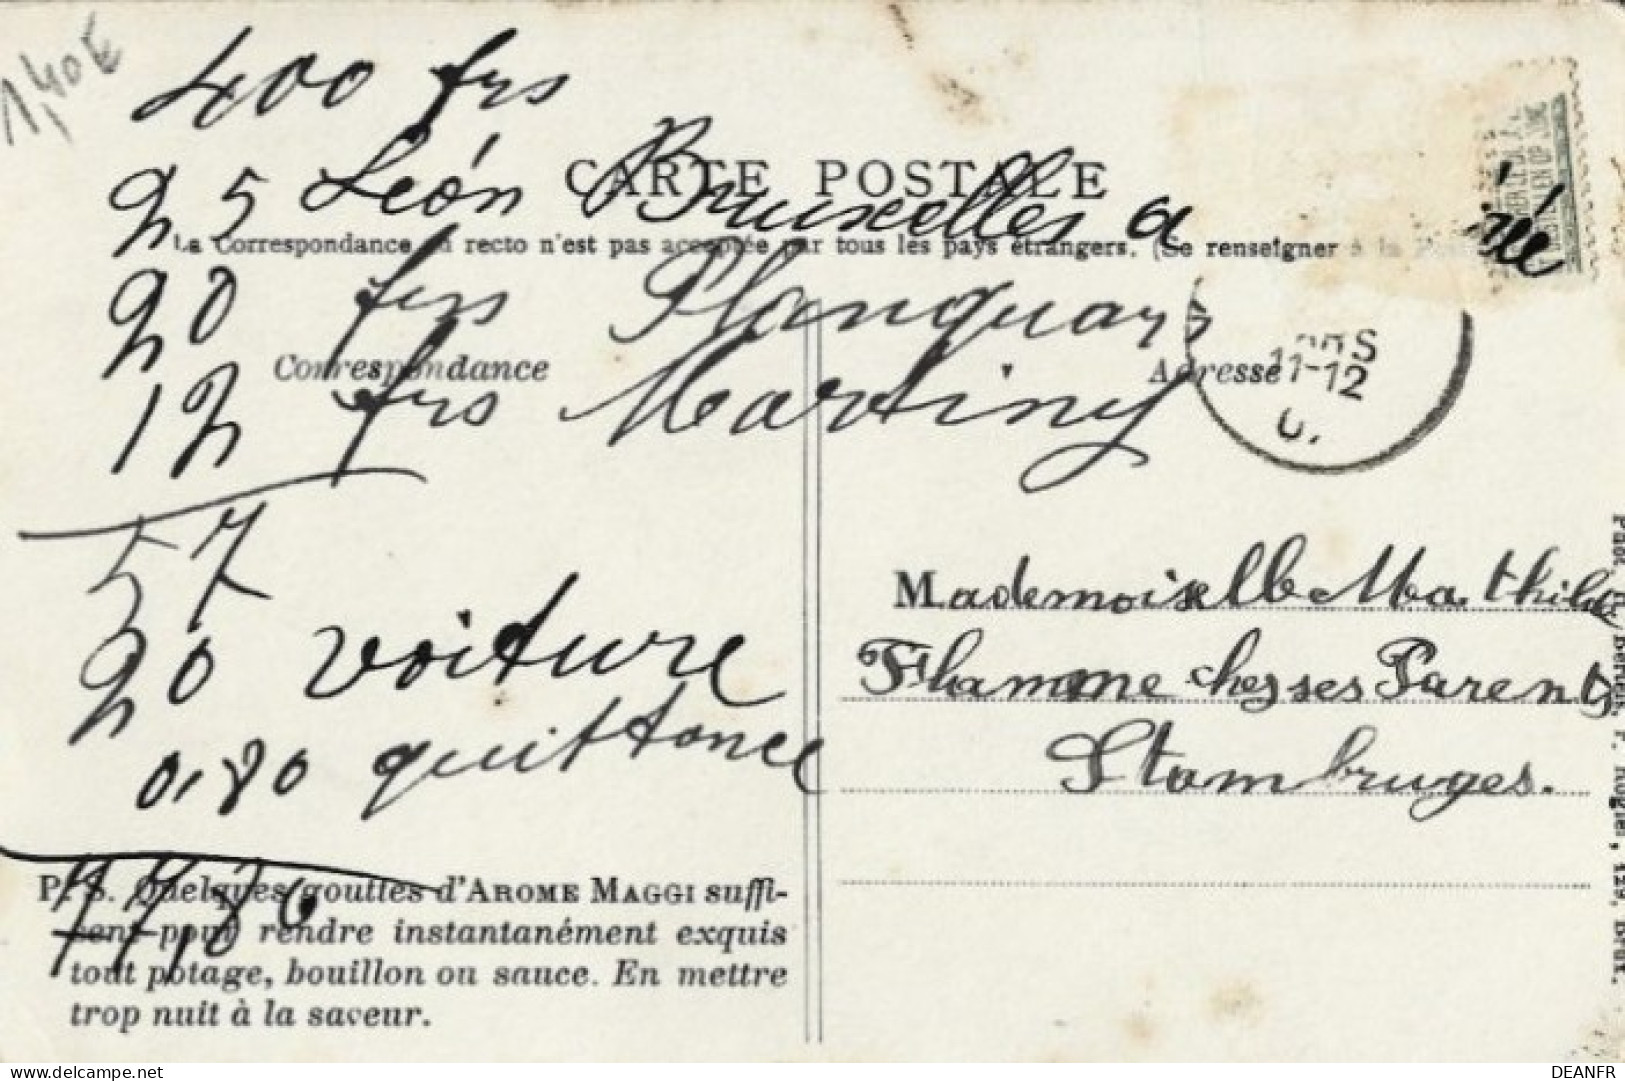 1,40 €
400 frs
CARTE POSTALE
25 Léon Bruxelles a
La Correspondance au recto n'est pas acceptée par tous les pays étrangers. (Se renseigner à la
20 frs Planquart
Correspondance
Adresse
11-12
12 frs Martiny
57
20 voiture
0,80 quittance
77,80
Mademoiselle Mathilde
Flamme chez ses Parents
Stambruges.
P. S. Quelques gouttes d'AROME MAGGI suffi-
sent pour rendre instantanément exquis
tout potage, bouillon ou sauce. En mettre
trop nuit à la saveur.
129, Brux.
delcampe.net
DEANFR